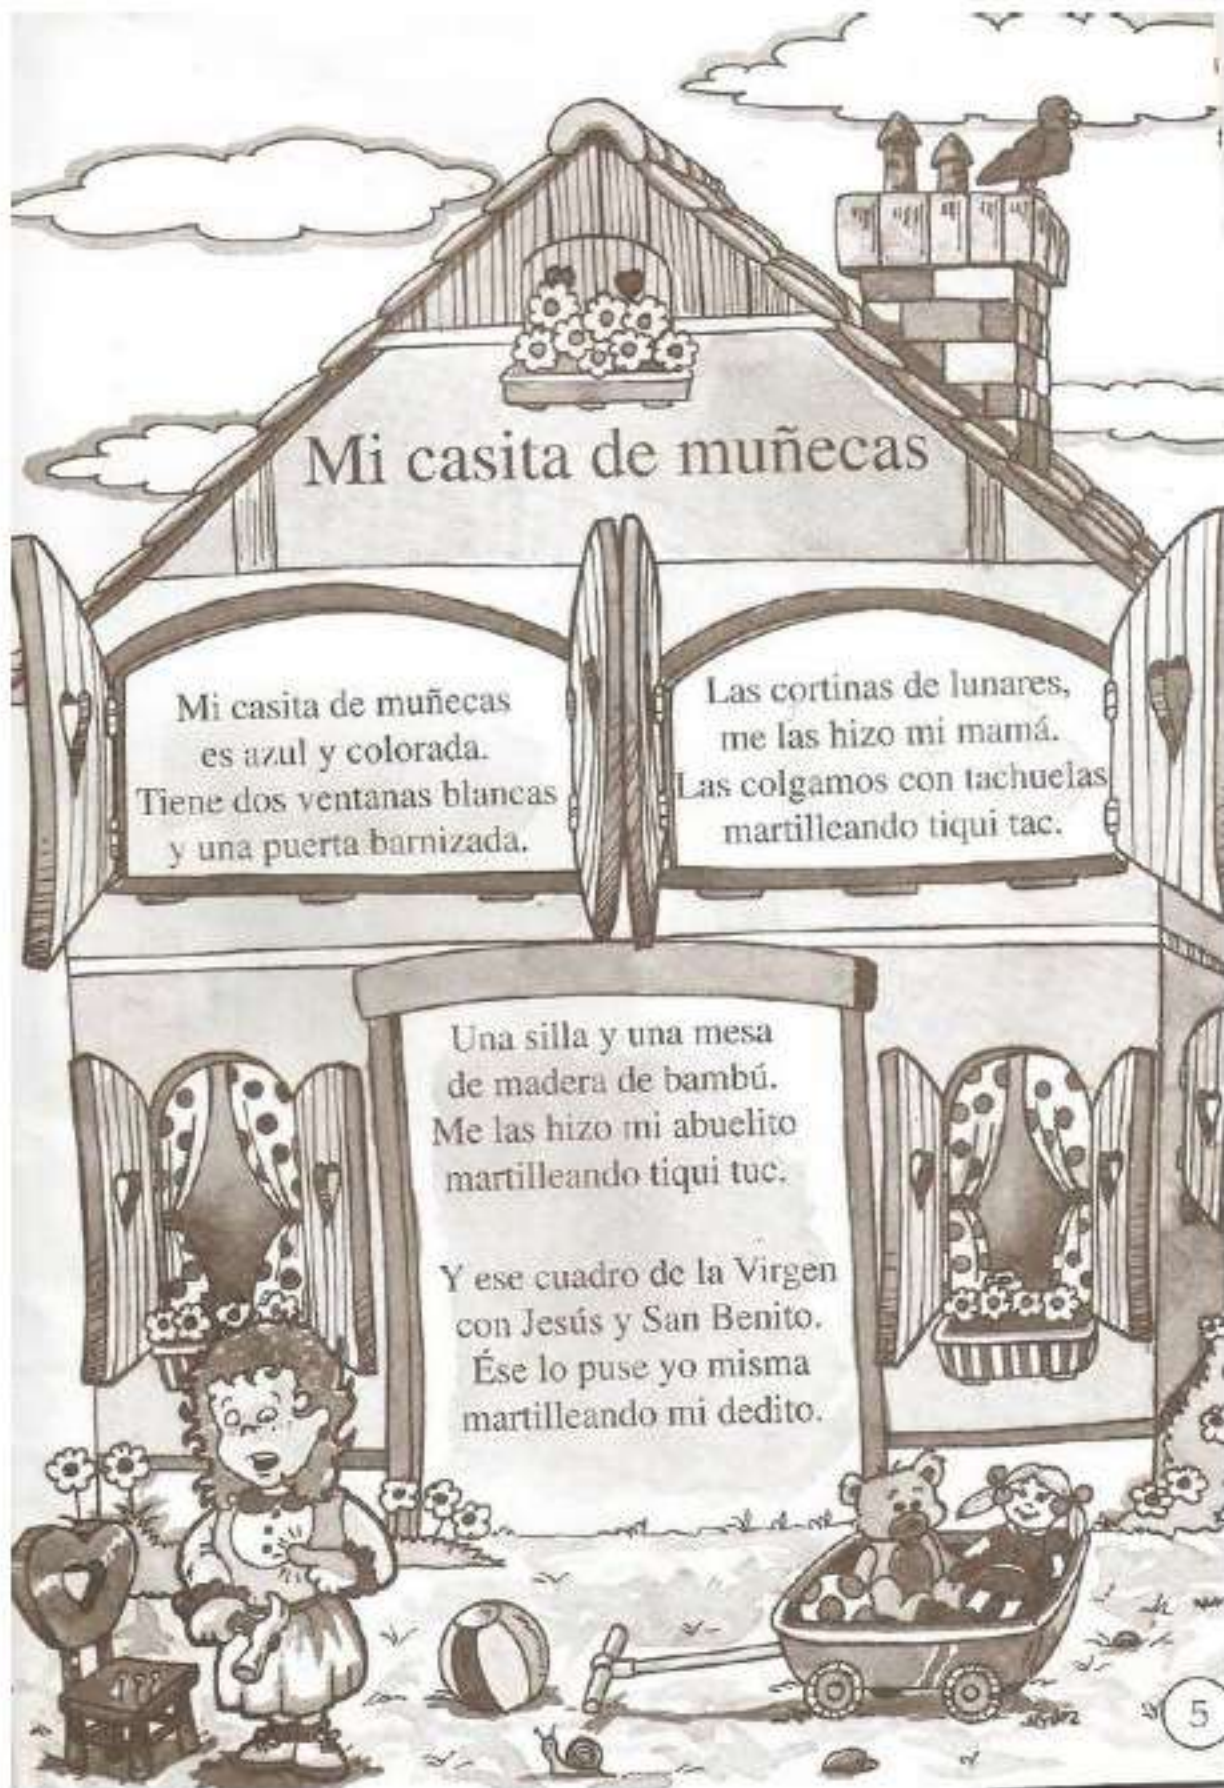 Mi casita de muñecas
Mi casita de muñecas
es azul y colorada.
Tiene dos ventanas blancas
y una puerta barnizada.
Las cortinas de lunares,
me las hizo mi mamá.
Las colgamos con tachuelas
martilleando tiqui tac.
Una silla y una mesa
de madera de bambú.
Me las hizo mi abuelito
martilleando tiqui tuc.
Y ese cuadro de la Virgen
con Jesús y San Benito.
Ése lo puse yo misma
martilleando mi dedito.
5